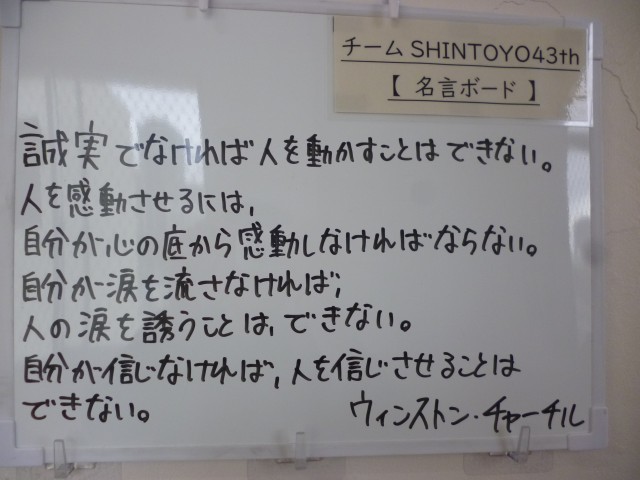 チーム SHINTOYO43th
【 名言ボード 】
誠実でなければ人を動かすことはできない。
人を感動させるには、
自分が心の底から感動しなければならない。
自分が涙を流さなければ、
人の涙を誘うことは、できない。
自分が信じなければ、人を信じさせることは
できない。 ウィンストン・チャーチル